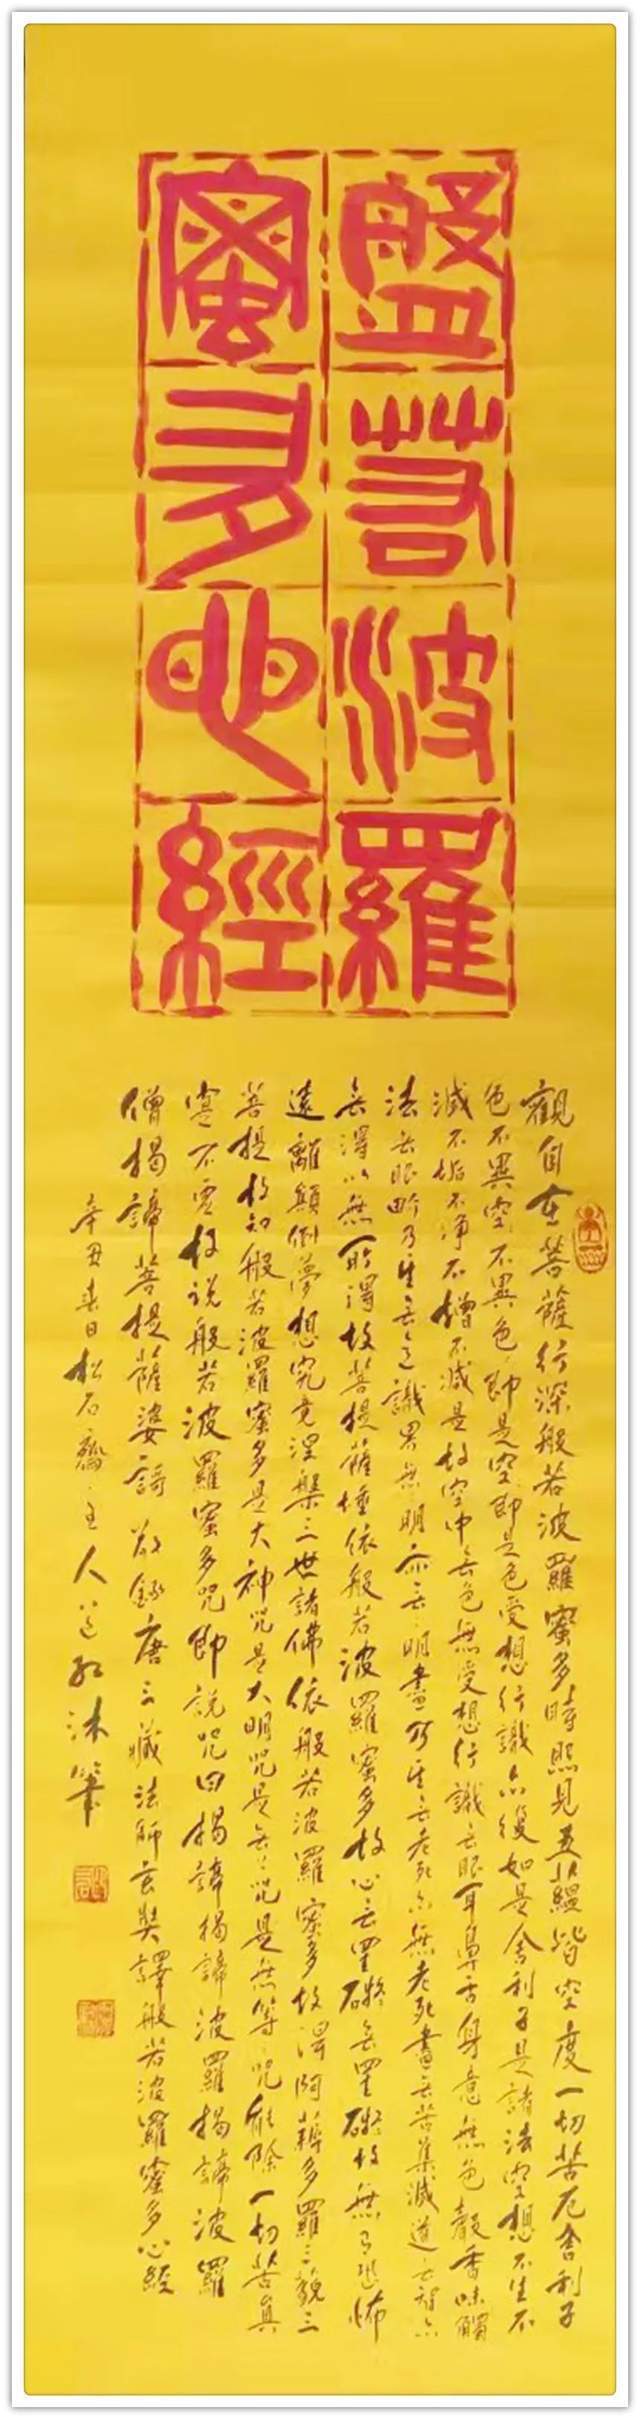 盤若波羅
蜜多心經
觀自在菩薩行深般若波羅蜜多時照見五蘊皆空度一切苦厄舍利子
色不異空不異色即是空即是色受想行識亦復如是舍利子是諸法空想不生不
滅不垢不净不增不減是故空中無色無受想行識無眼耳鼻舌身意無色聲香味觸
法無眼界乃至無意識界無無明亦無無明盡乃至無老死亦無老死盡無苦集滅道無智亦
無得以無所得故菩提薩埵依般若波羅蜜多故心無罣礙無罣礙故無有恐怖
遠離顛倒夢想究竟涅槃三世諸佛依般若波羅蜜多故得阿耨多羅三藐三
菩提故知般若波羅蜜多是大神咒是大明咒是無上咒是無等咒能除一切苦真
實不虛故說般若波羅蜜多咒即說咒曰揭諦揭諦波羅揭諦波羅
僧揭諦菩提薩婆訶敬錄唐三藏法師玄奘譯般若波羅蜜多心經
辛丑春日松石齋主人沐筆